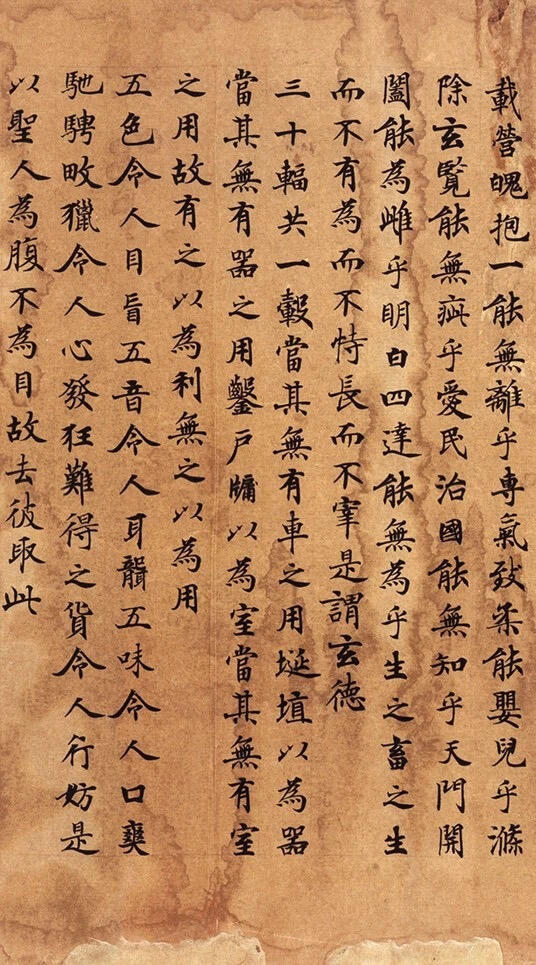 載營魄抱一能無離乎専氣致柔能嬰兒乎滌
除玄覽能無疵乎愛民治國能無知乎天門開
闔能為雌乎明白四達能無為乎生之畜之生
而不有為而不恃長而不宰是謂玄德
三十輻共一轂當其無有車之用埏埴以為器
當其無有器之用鑿戶牖以為室當其無有室
之用故有之以為利無之以為用
五色令人目盲五音令人耳聾五味令人口爽
馳騁畋獵令人心發狂難得之貨令人行妨是
以聖人為腹不為目故去彼取此